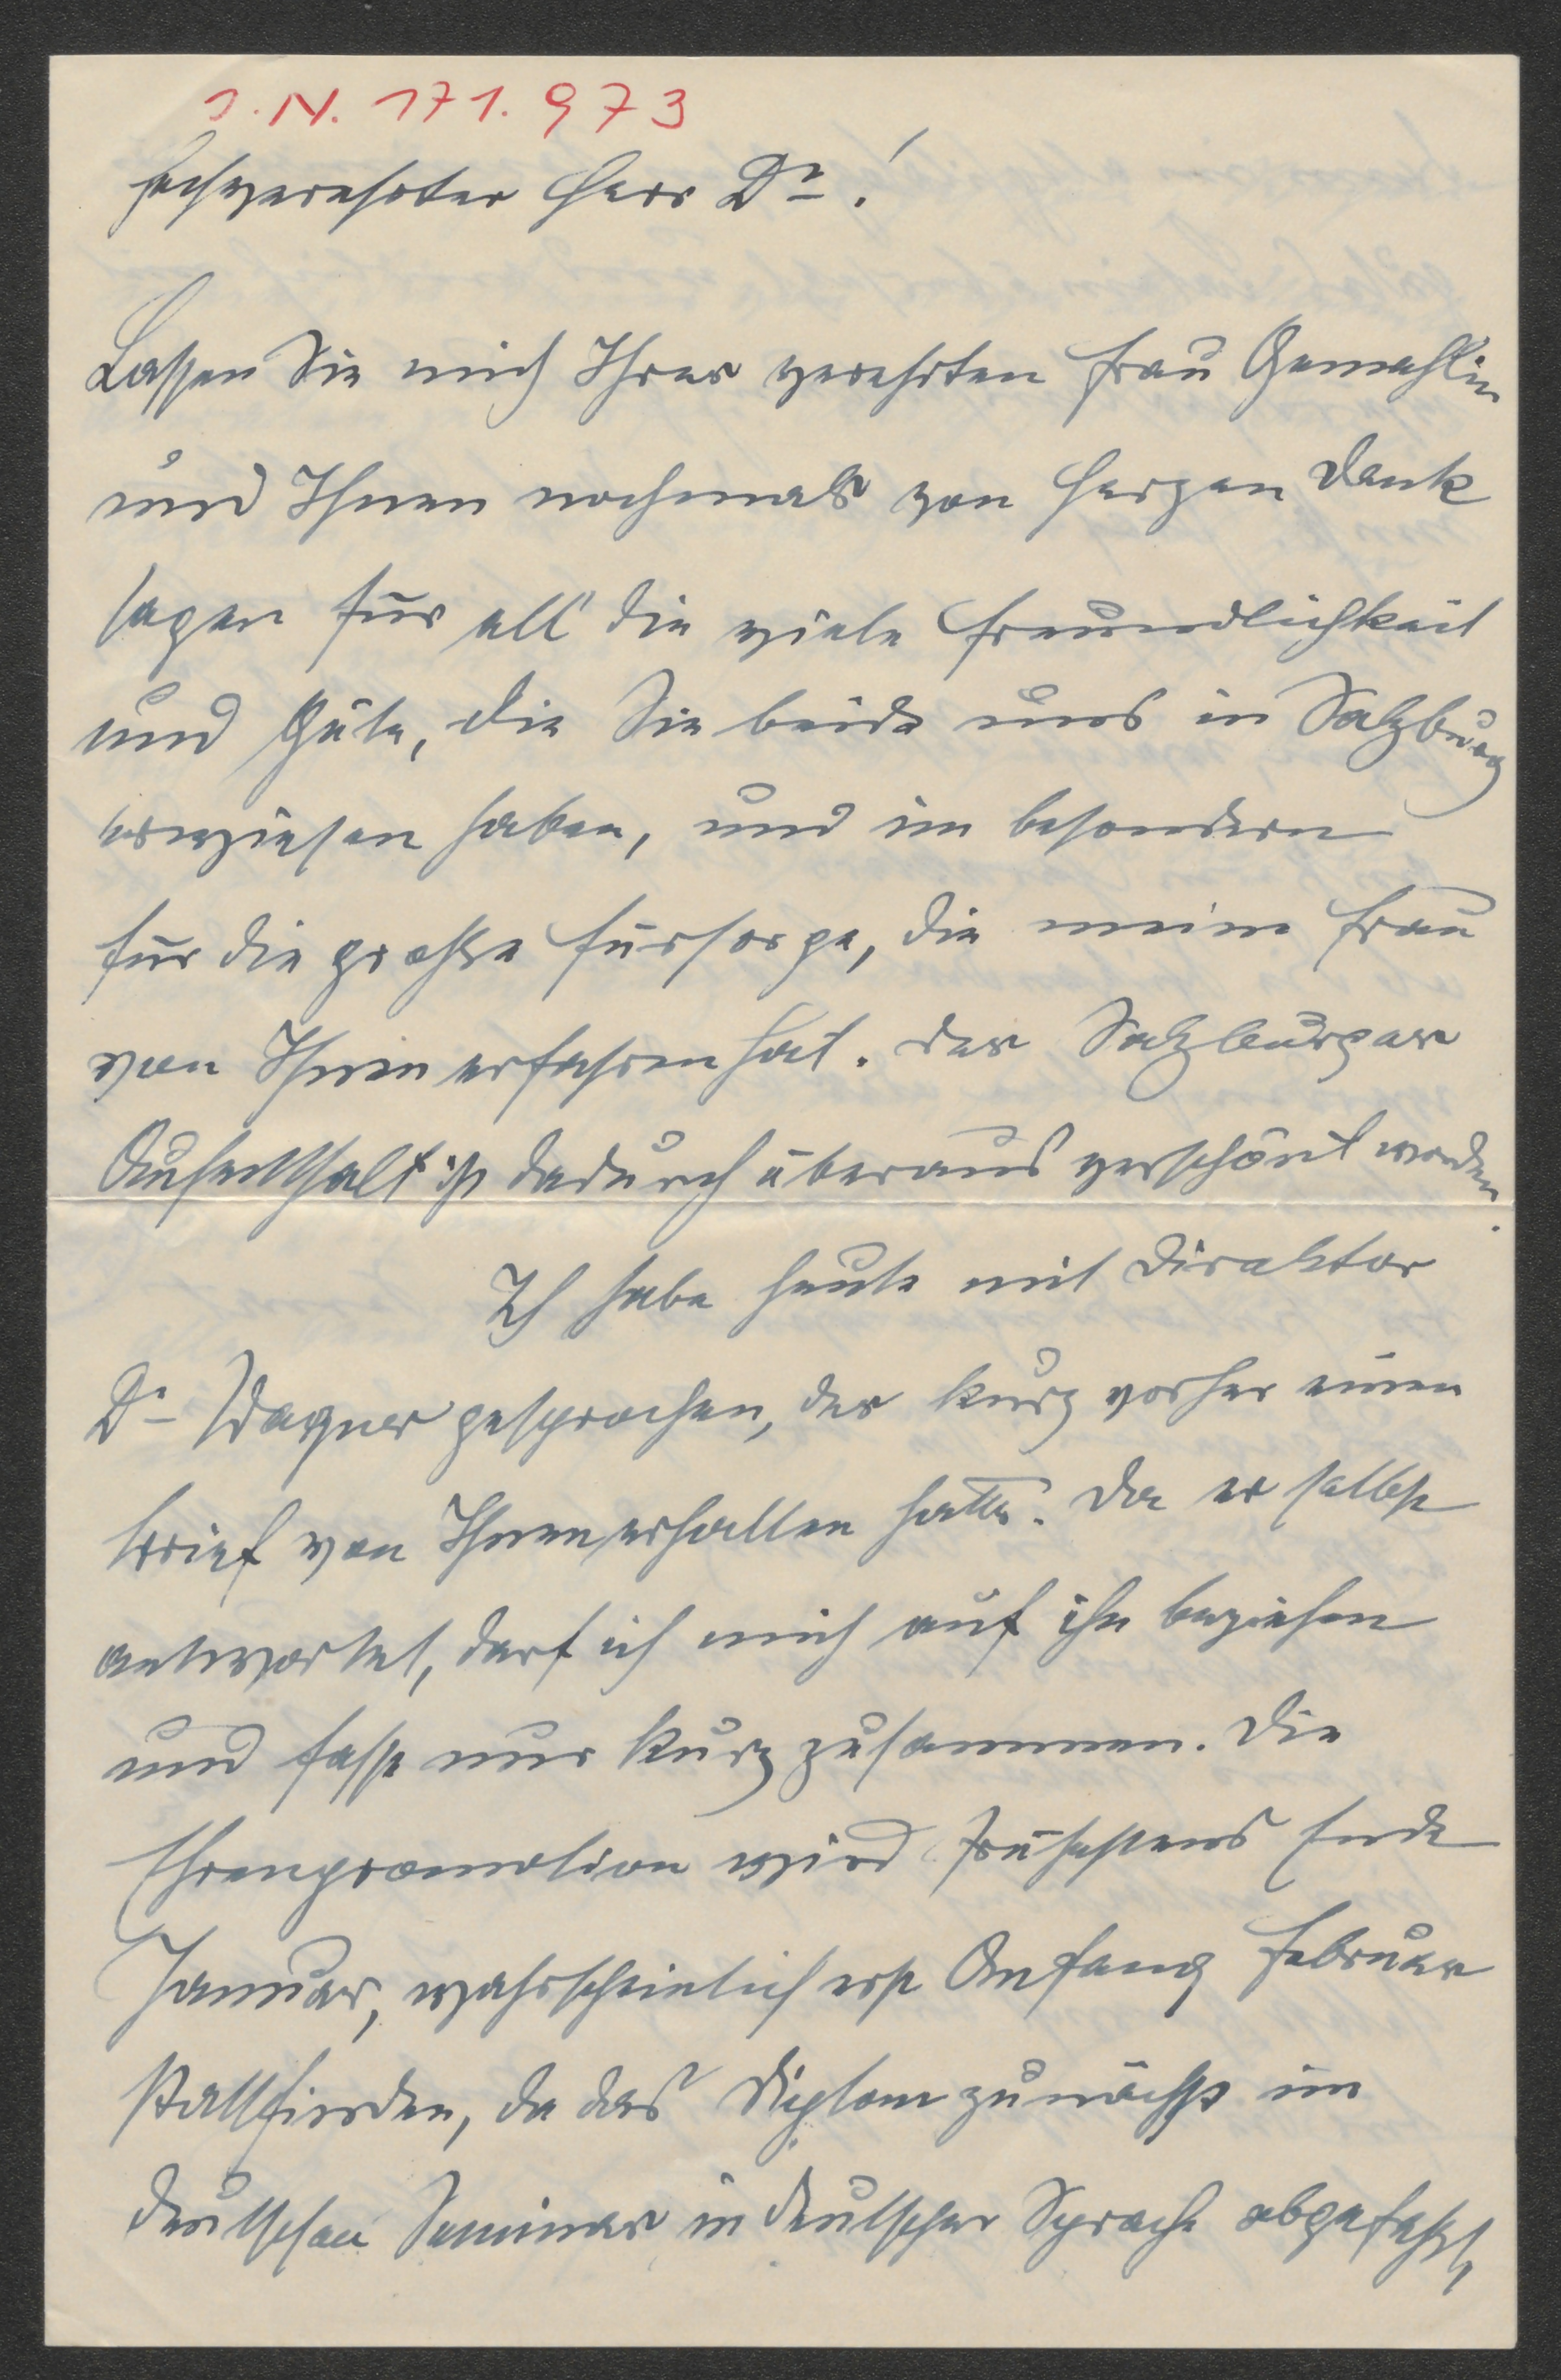 J.N. 171.973
Hochverehrter Herr Dr.!
Lassen Sie mich Ihrer verehrten Frau Gemahlin
und Ihnen nochmals von Herzen Dank
sagen für all' die viele Freundlichkeit
und Güte, die Sie beide uns in Salzburg
erwiesen haben, und im besondern
für die große Fürsorge, die meine Frau
von Ihnen erfahren hat. Der Salzburger
Aufenthalt ist dadurch überaus verschönt worden.
Ich habe heute mit Direktor
Dr. Wagner gesprochen, der kurz vorher einen
Brief von Ihnen erhalten hatte. Da er selbst
antwortet, darf ich mich auf ihn beziehen
und fasse nur kurz zusammen. Die
Ehrenpromotion wird frühestens Ende
Januar, wahrscheinlich erst Anfang Februar
stattfinden, da das Diplom zunächst im
deutschen Seminar in deutscher Sprache abgefaßt,